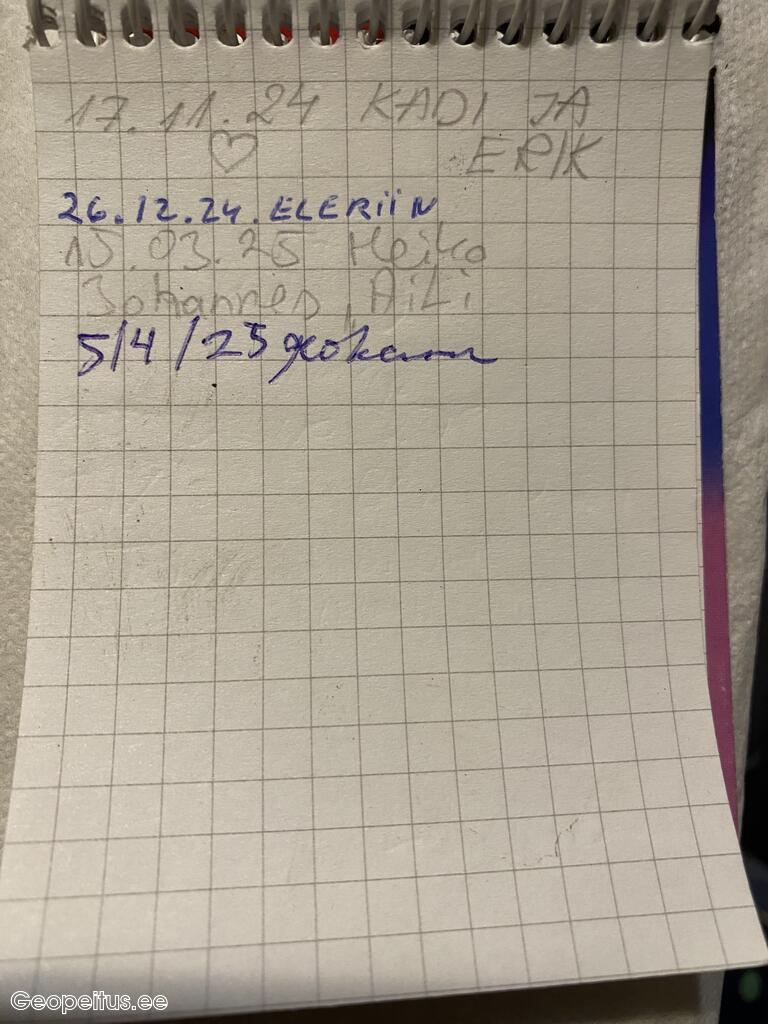 17.11.24 KADI JA
♡ ERIK
26.12.24. ELERIIN
15.03.25 Heiko
Johannes, AiLi
5/4/25
Geopeitus.ee